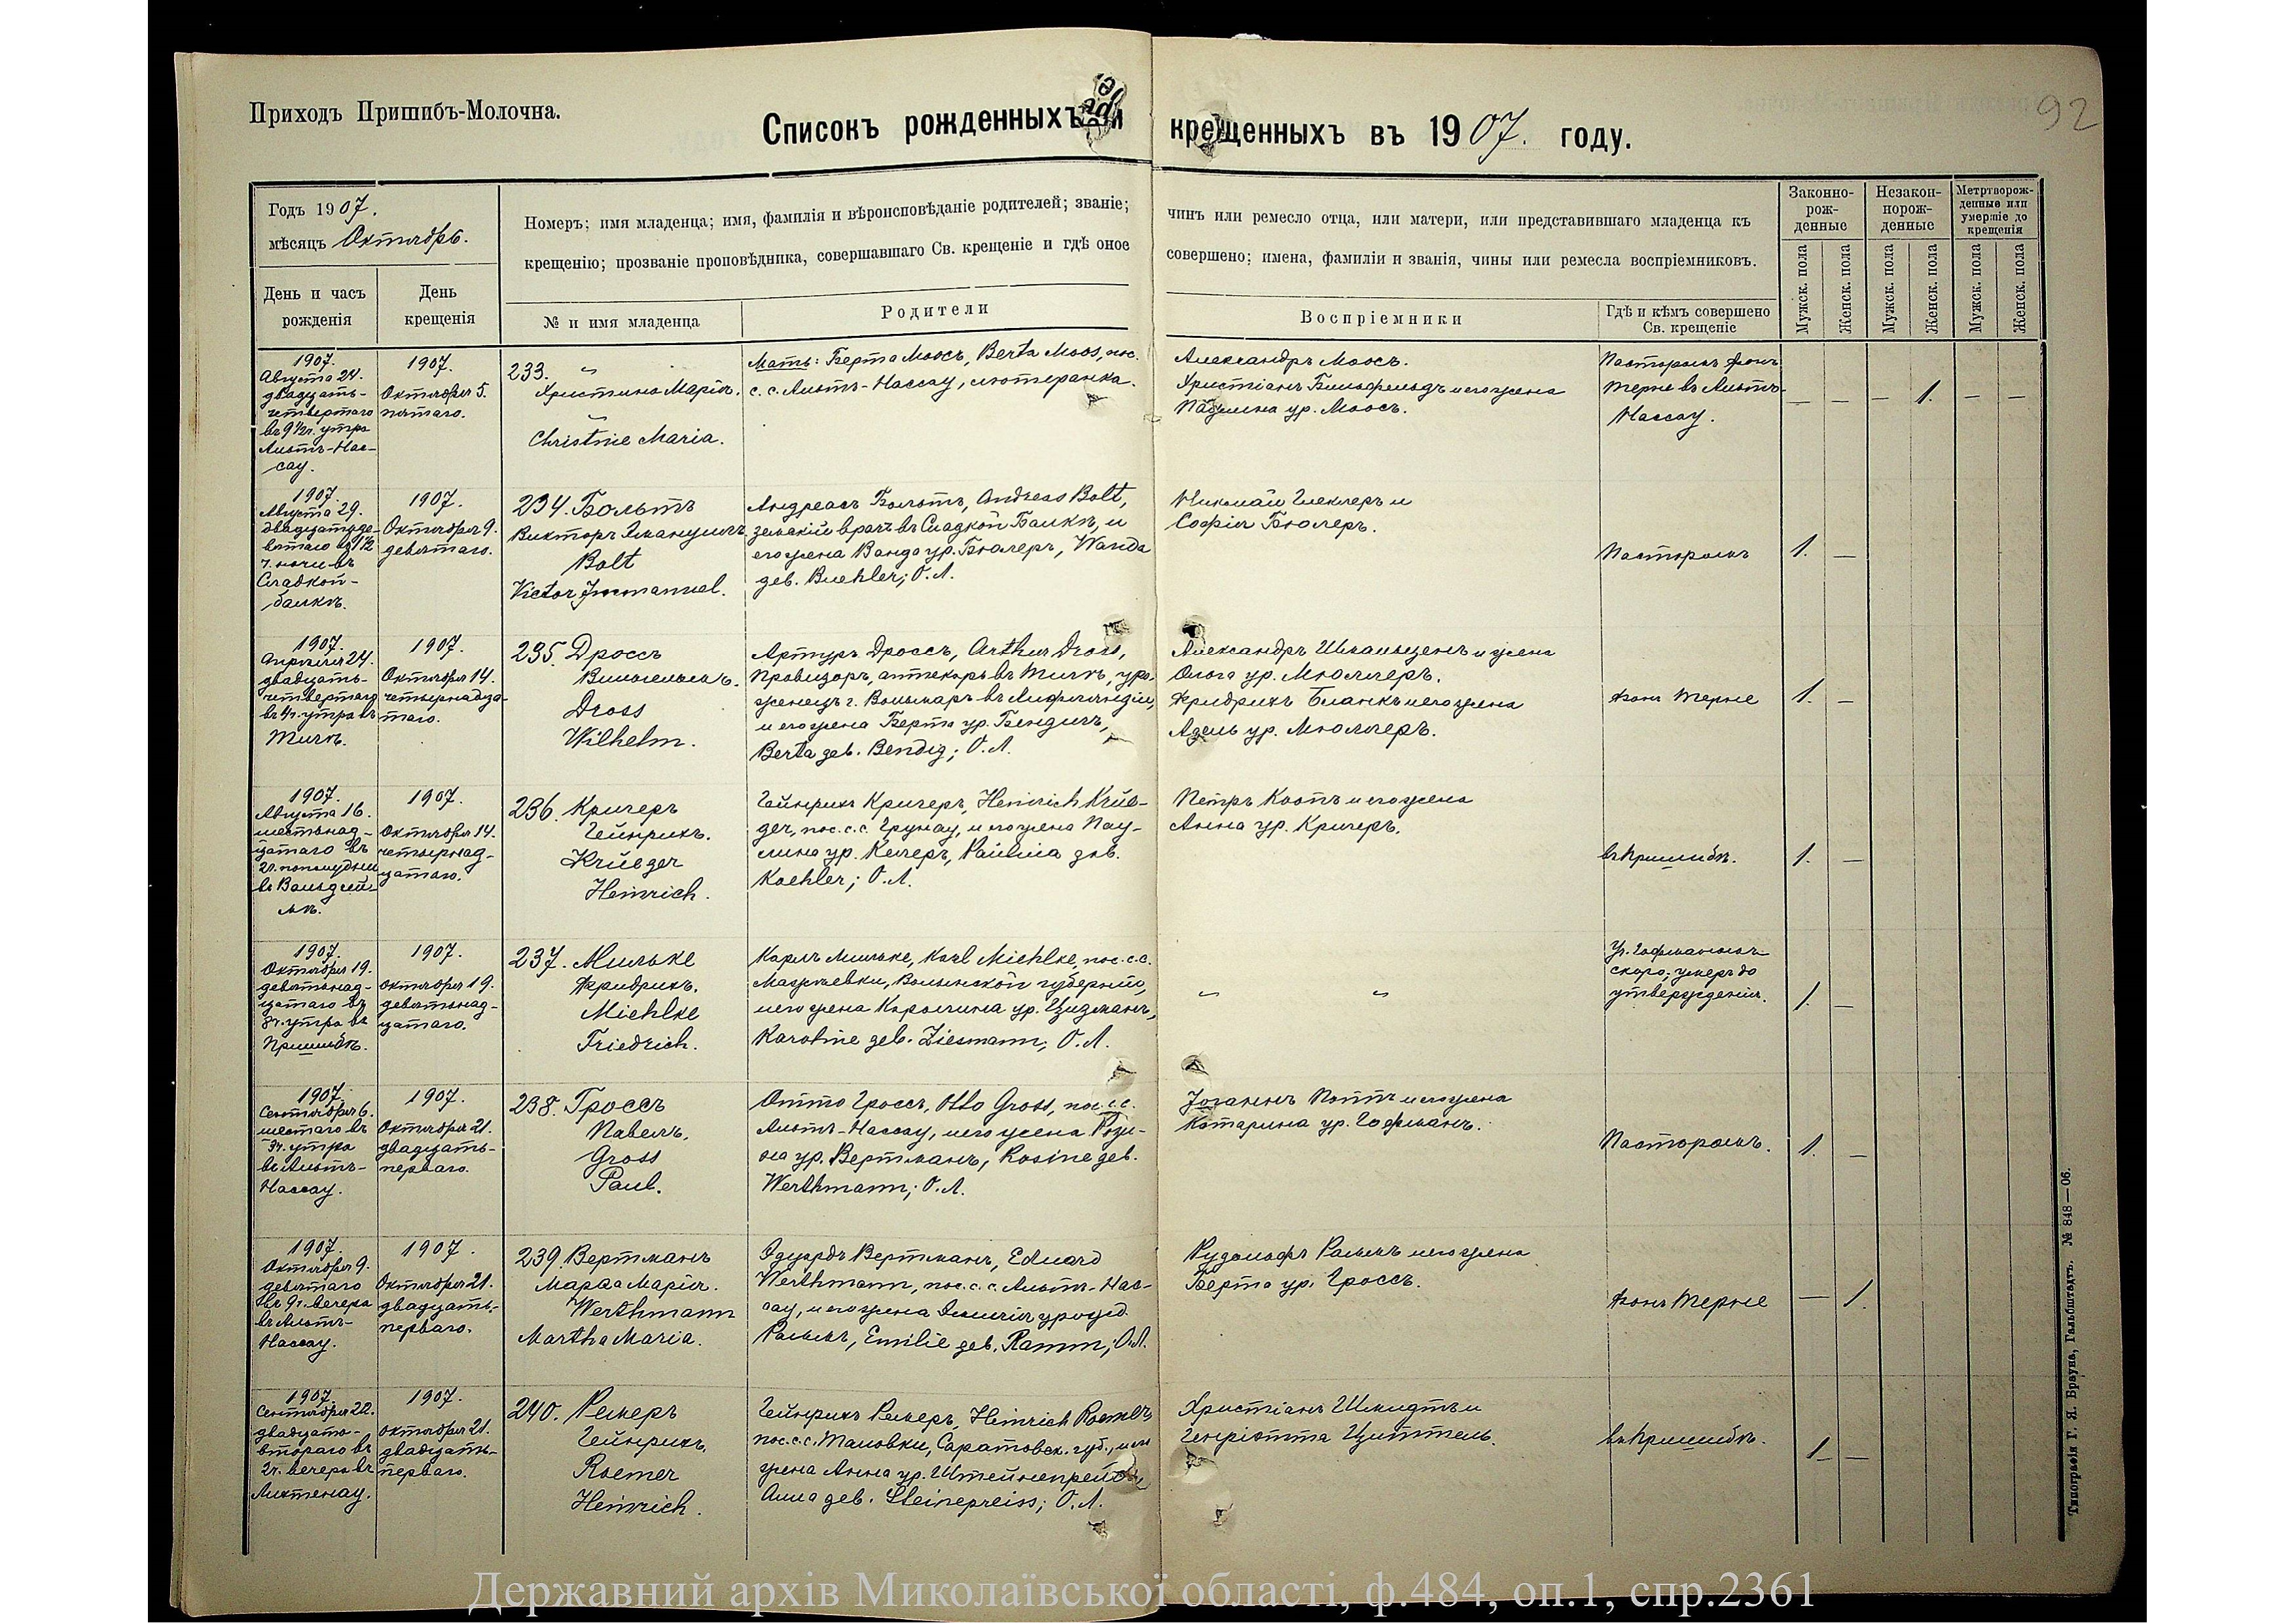 92
Приходъ Пришибъ-Молочна.
Списокъ рожденныхъ и крещенныхъ въ 1907. году.
Годъ 1907.
мѣсяцъ Октябрь.
День и часъ
рожденія
День
крещенія
Номеръ; имя младенца; имя, фамилія и вѣроисповѣданіе родителей; званіе;
крещенію; прозваніе проповѣдника, совершавшаго Св. крещеніе и гдѣ оное
№ и имя младенца
Родители
чинъ или ремесло отца, или матери, или представившаго младенца къ
совершено; имена, фамиліи и званія, чины или ремесла воспріемниковъ.
Воспріемники
Гдѣ и кѣмъ совершено
Св. крещеніе
Законно-
рож-
денные
Незакон-
норож-
денные
Метртворож-
денные или
умершіе до
крещенія
Мужск. пола
Женск. пола
Мужск. пола
Женск. пола
Мужск. пола
Женск. пола
1907.
Августа 24.
двадцать-
четвертаго
въ 9 1/2 ч. утра
Альтъ-Нас-
сау.
1907.
Октября 5.
пятаго.
233. "
Христина Марія.
"
Christine Maria.
Мать: Берта Моосъ, Berta Moos, пос.
с. с. Альтъ-Нассау, лютеранка.
Александръ Моосъ.
Христіанъ Бильфельдъ и его жена
Паулина ур. Моосъ.
Пасторомъ фонъ
Терне въ Альтъ-
Нассау.
— — — 1. — —
1907.
Августа 29.
двадцать де-
вятаго въ 1 1/2
ч. ночи въ
Сладкой-
балкѣ.
1907.
Октября 9.
девятаго.
234. Больтъ
Викторъ Имануилъ.
Bolt
Victor Immanuel.
Андреасъ Больтъ, Andreas Bolt,
земскій врачъ въ Сладкой Балкѣ, и
его жена Ванда ур. Бюлеръ, Wanda
geb. Buehler; О. Л.
Николай Геклеръ и
Софія Бюлеръ.
Пасторомъ
1. —
1907.
Апрѣля 24.
двадцать-
четвертаго
въ 4 ч. утра въ
Тигѣ.
1907.
Октября 14.
четырнадца-
таго.
235. Дроссъ
Вильгельмъ.
Dross
Wilhelm.
Артуръ Дроссъ, Arthur Dross,
Провизоръ, аптекарь въ Тигѣ, уро-
женецъ г. Вольмаръ въ Лифляндіи,
и его жена Берта ур. Бендигъ,
Berta geb. Bendig; О. Л.
Александръ Шмальценъ и жена
Ольга ур. Мюллеръ.
Фридрихъ Бланкъ и его жена
Адель ур. Мюллеръ.
фонъ Терне
1. —
1907.
Августа 16.
шестьнад-
цатаго въ
2 ч. пополудни
въ Вальдгей-
мѣ.
1907.
Октября 14.
четырнад-
цатаго.
236. Кригеръ
Гейнрихъ.
Krueger
Heinrich.
Гейнрихъ Кригеръ, Heinrich Krue-
ger, пос. с. с. Грунау, и его жена Пау-
лина ур. Келеръ, Paulina geb.
Koehler; О. Л.
Петръ Коопъ и его жена
Анна ур. Кригеръ.
въ Пришибѣ.
1. —
1907.
Октября 19.
девятьнад-
цатаго въ
8 ч. утра въ
Пришибѣ.
1907.
Октября 19.
девятьнад-
цатаго.
237. Мильке
Фридрихъ.
Miehlke
Friedrich.
Карлъ Мильке, Karl Miehlke, пос. с. с.
Волынской губерніи,
и его жена Каролина ур. Цизманъ,
Karoline geb. Ziesmann; О. Л.
" "
Уч. Гофманомъ
скоро; умеръ до
утвержденія.
1. —
1907.
Сентября 6.
шестаго въ
3 ч. утра
въ Альтъ-
Нассау.
1907.
Октября 21.
двадцать-
перваго.
238. Гроссъ
Павелъ.
Gross
Paul.
Отто Гроссъ, Otto Gross, пос. с. с.
Альтъ-Нассау, и его жена Рози-
на ур. Вертманъ, Rosine geb.
Werthmann; О. Л.
Іоганнъ Поппъ и его жена
Катарина ур. Гофманъ.
Пасторомъ.
1. —
1907.
Октября 9.
девятаго
въ 9 ч. вечера
въ Альтъ-
Нассау.
1907.
Октября 21.
двадцать-
перваго.
239. Вертманъ
Марѳа Марія.
Werthmann
Martha Maria.
Эдуардъ Вертманъ, Eduard
Werthmann, пос. с. с. Альтъ-Нас-
сау, и его жена Эмилія урожд.
Раммъ, Emilie geb. Ramm; О. Л.
Рудольфъ Раммъ и его жена
Берта ур. Гроссъ.
фонъ Терне
— 1.
1907.
Сентября 22.
двадцать-
втораго въ
2 ч. вечера въ
Лихтенау.
1907.
Октября 21.
двадцать-
перваго.
240. Ремеръ
Гейнрихъ.
Roemer
Heinrich.
Гейнрихъ Ремеръ, Heinrich Roemer
пос. с. с. Таловки, Саратовск. губ., и его
жена Анна ур. Штейнепрейсъ,
Anna geb. Steinepreiss; О. Л.
Христіанъ Шмидтъ и
Генріетта Циттель.
въ Пришибѣ.
1. —
Типографія Г. Я. Брауна, Гальбштадтъ. № 848 — 06.
Державний архів Миколаївської області, ф.484, оп.1, спр.2361